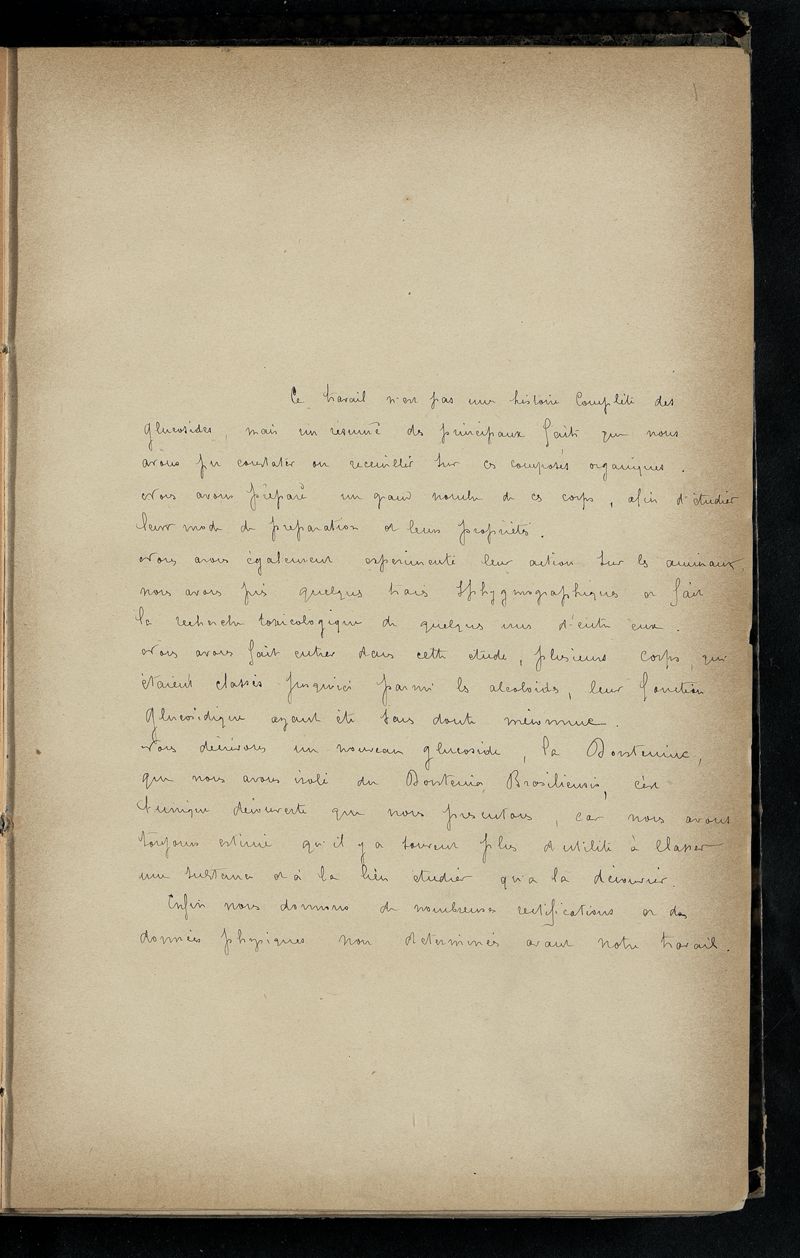 Ce travail n'est pas une histoire complète des
glucosides, mais un résumé des principaux faits que nous
avons pu constater ou receuillir sur ces composés organiques.
Nous avons préparé un grand nombre de ces corps, afin d'étudier
leur mode de préparation et leurs propriétés.
Nous avons également expérimenté leur action sur les animaux,
nous avons pris quelques tracés sphygmographiques et fait
la recherche toxicologique de quelques uns d'entre eux.
Nous avons fait entrer dans cette étude, plusieurs corps, qui
étaient classés jusqu'ici parmi les alcaloïdes, leur fonction
glucosidique ayant été sans doute méconnue.
Nous décrirons un nouveau glucoside, la Dorstenine,
que nous avons isolé du Dorstenia Brasiliensis, c'est
l'unique découverte que nous présentons, car nous avons
toujours estimé qu'il y a souvent plus d'utilité à classer
une substance et à la bien étudier qu'a la découvrir.
Enfin nous donnons de nombreuses rectifications et des
données physiques non déterminées avant notre travail.